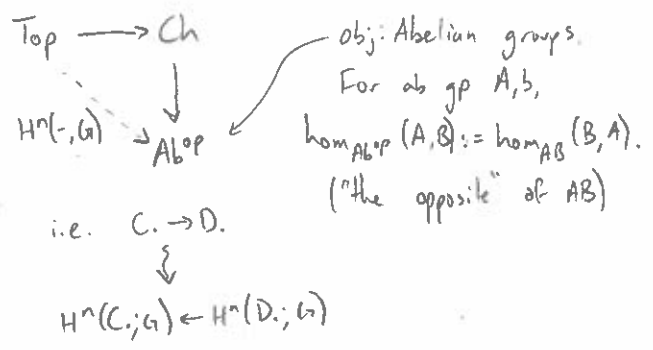 Top → Ch
obj: Abelian groups.
For ab gp A, b,
H^n(-, G)
Ab^op
hom_{Ab^op}(A, B) := hom_{AB}(B, A).
("the opposite" of AB)
i.e. C. → D.
H^n(C.; G) ← H^n(D.; G)